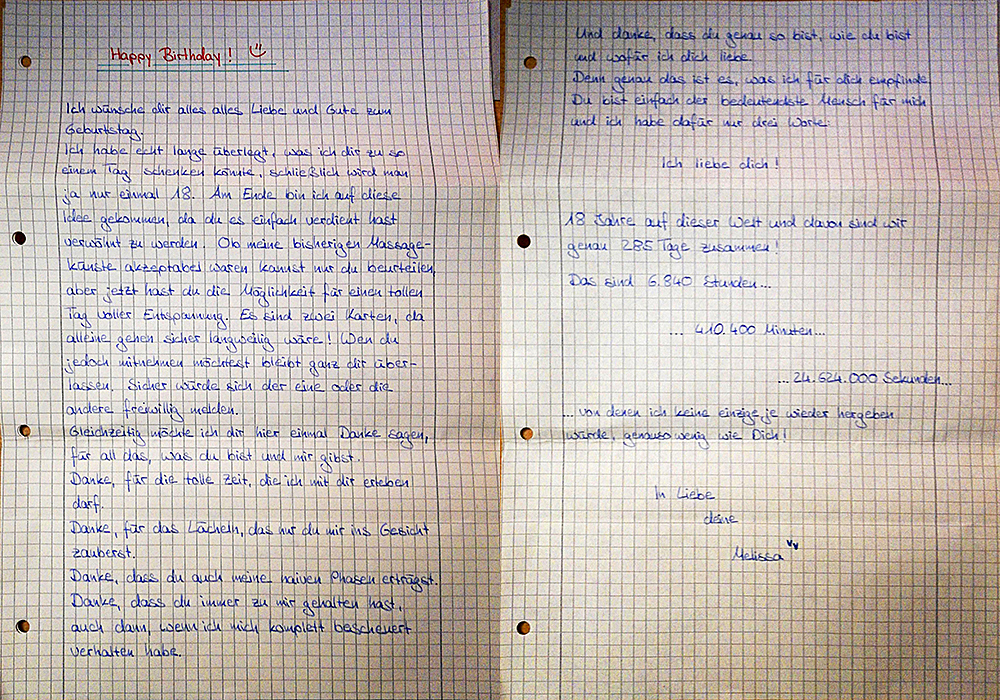 Happy Birthday!
Ich wünsche dir alles alles Liebe und Gute zum
Geburtstag.
Ich habe echt lange überlegt, was ich dir zu so
einem Tag schenken könnte, schließlich wird man
ja nur einmal 18. Am Ende bin ich auf diese
Idee gekommen, da du es einfach verdient hast
verwöhnt zu werden. Ob meine bisherigen Massage-
künste akzeptabel waren kannst nur du beurteilen,
aber jetzt hast du die Möglichkeit für einen tollen
Tag voller Entspannung. Es sind zwei Karten, da
alleine gehen sicher langweilig wäre! Wen du
jedoch mitnehmen möchtest bleibt ganz dir über-
lassen. Sicher würde sich der eine oder die
andere freiwillig melden.
Gleichzeitig möchte ich dir hier einmal Danke sagen,
für all das, was du bist und mir gibst.
Danke, für die tolle Zeit, die ich mit dir erleben
darf.
Danke, für das Lächeln, das nur du mir ins Gesicht
zauberst.
Danke, dass du auch meine naiven Phasen erträgst.
Danke, dass du immer zu mir gehalten hast,
auch dann, wenn ich mich komplett bescheuert
verhalten habe.
Und danke, dass du genau so bist, wie du bist
und wofür ich dich liebe.
Denn genau das ist es, was ich für dich empfinde.
Du bist einfach der bedeutendste Mensch für mich
und ich habe dafür nur drei Worte:
Ich liebe dich!
18 Jahre auf dieser Welt und davon sind wir
genau 285 Tage zusammen!
Das sind 6.840 Stunden...
... 410.400 Minuten...
... 24.624.000 Sekunden...
... von denen ich keine einzige je wieder hergeben
würde, genauso wenig wie Dich!
In Liebe
deine
Melissa